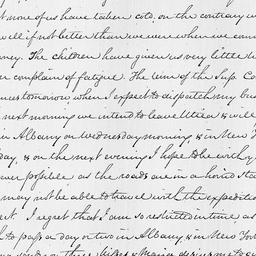 none of us have taken cold, on the contrary w
well if not better than we were when we comm
ney. The children have given us very little tr
r complain of fatigue. The term of the Sup. Co
nces tomorrow when I expect to dispatch my bus
next morning we intend to leave Utica & will
in Albany on Wednesday morning & in New Yo
day, & on the next evening I hope to be with y
ever possible as the roads are in a horrid sta
may not be able to travel with the expedition
ect. I regret that I am so restricted in time as
h to pass a day or two in Albany & in New York